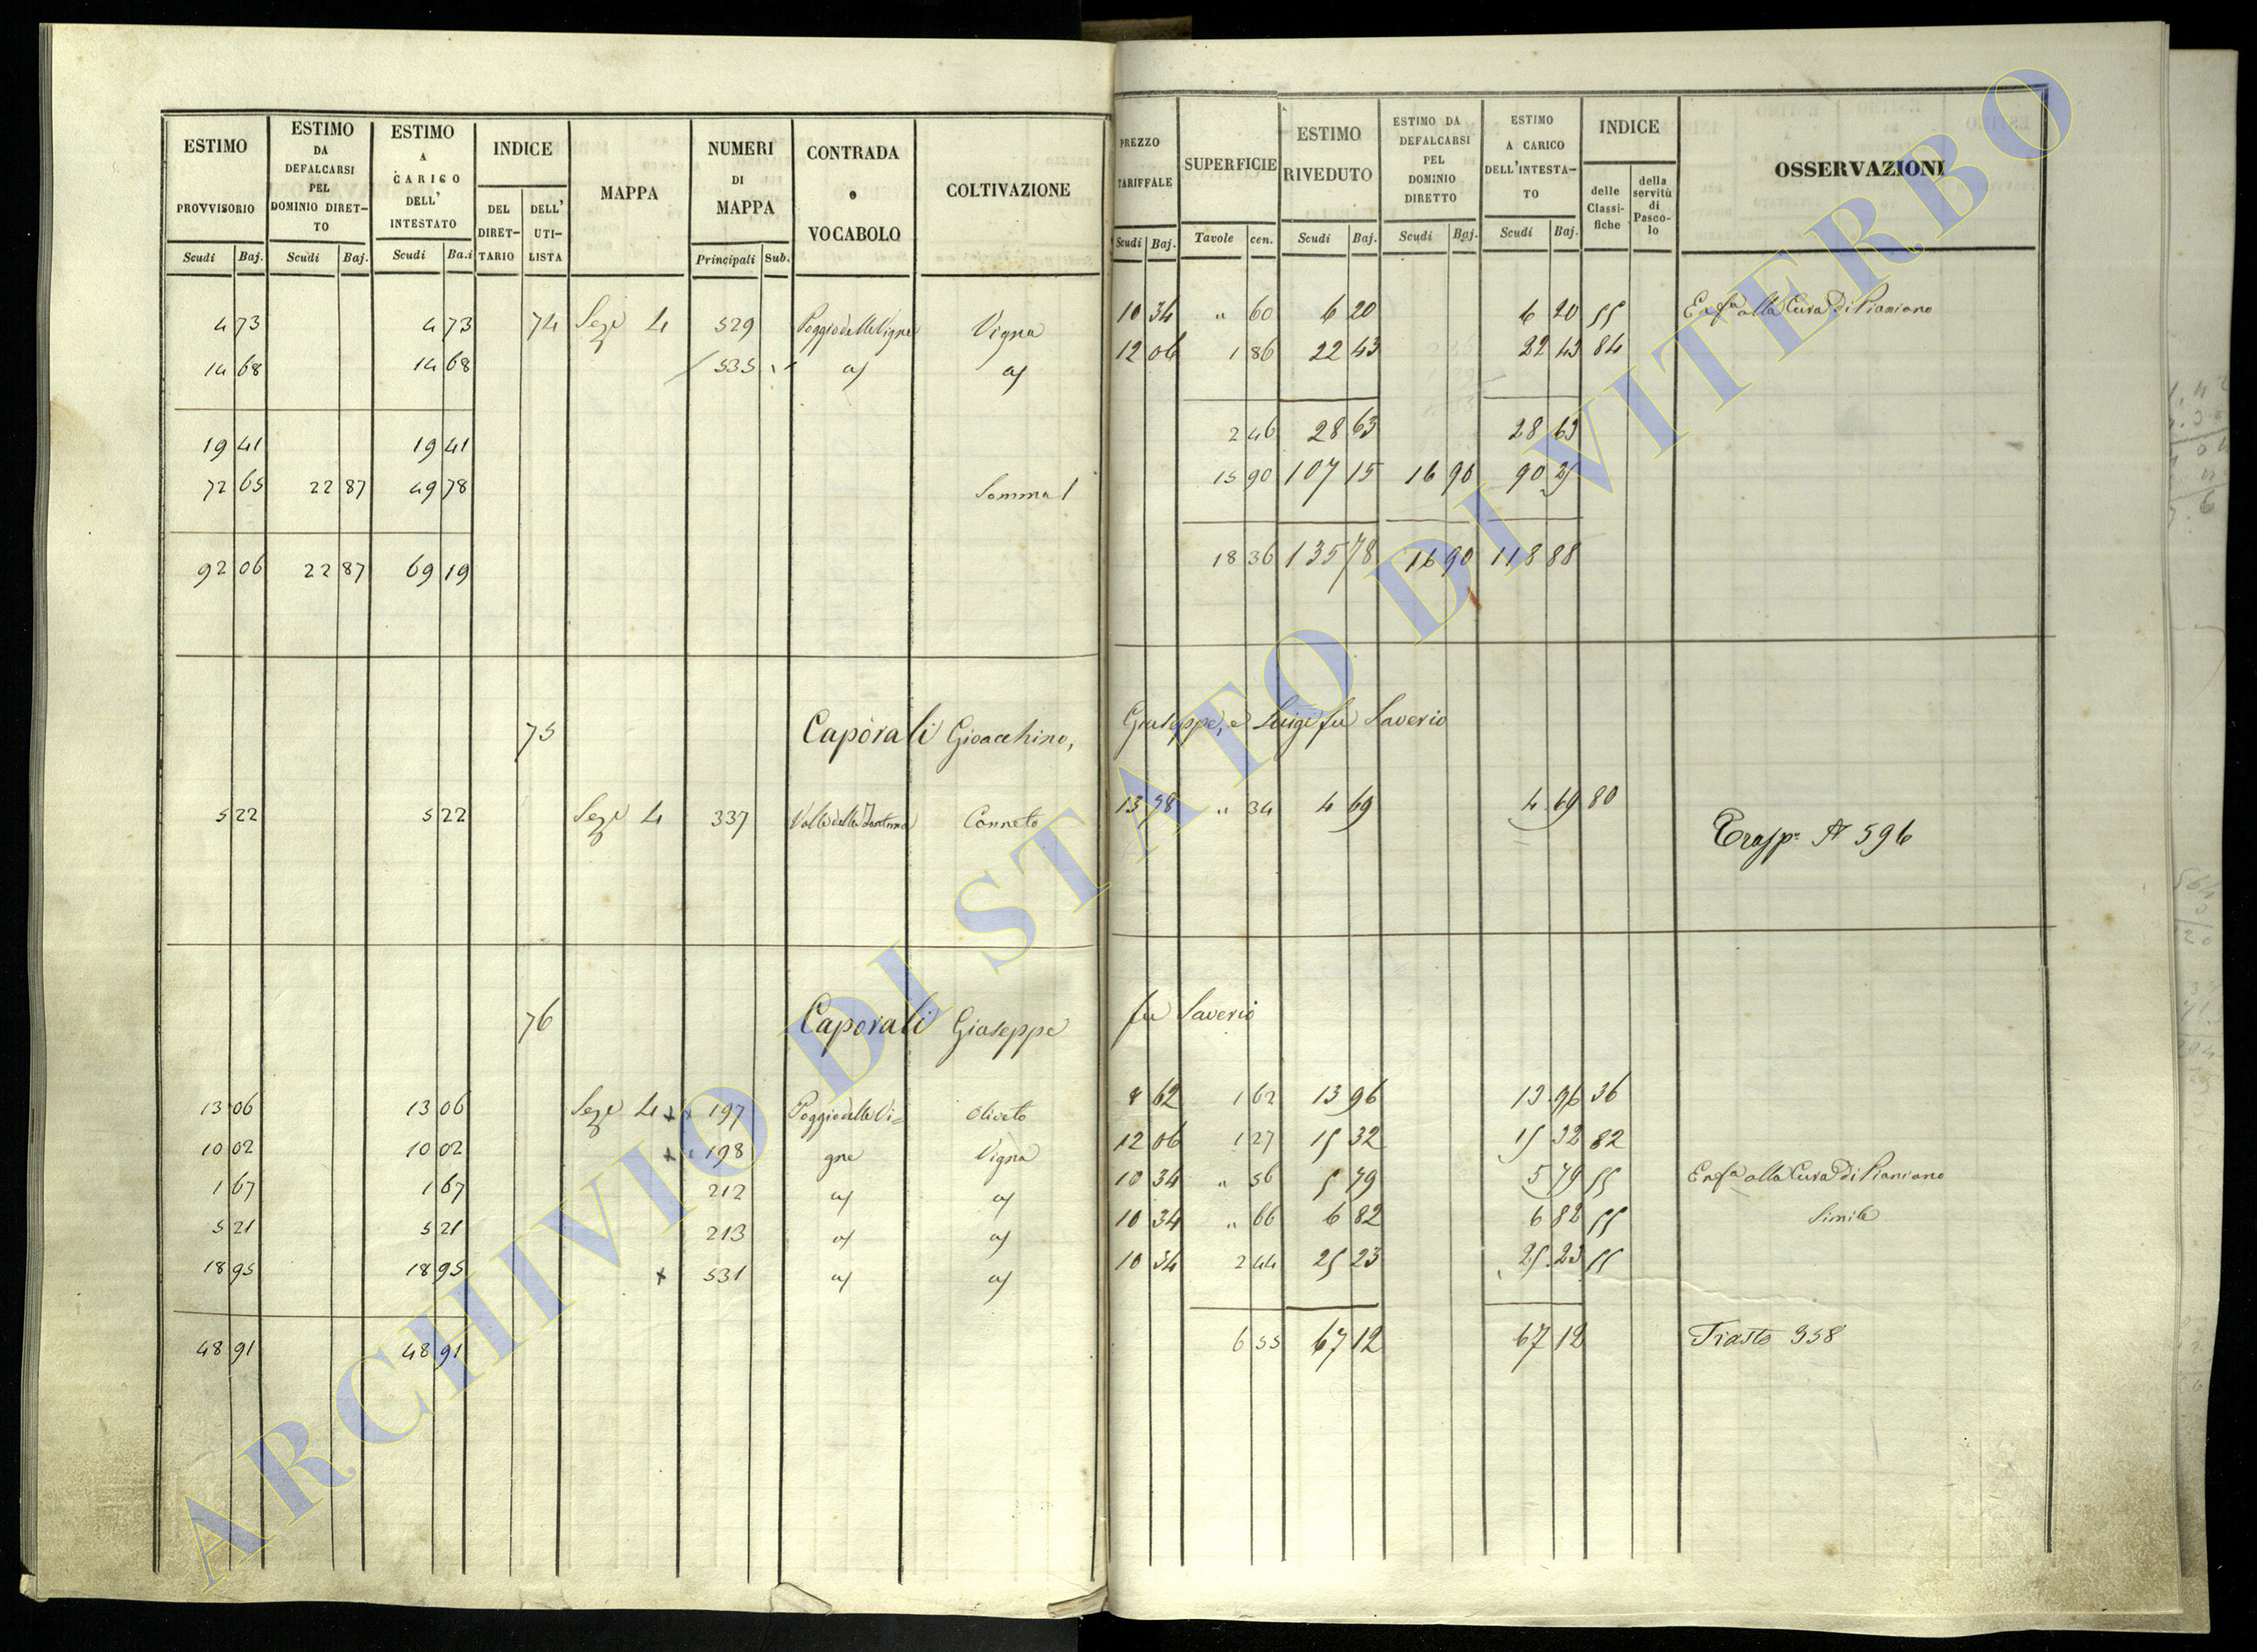 ESTIMO PROVVISORIO
ESTIMO DA DEFALCARSI PEL DOMINIO DIRET-TO
ESTIMO A CARICO DELL' INTESTATO
INDICE
DEL DIRET-TARIO
DELL' UTI-LISTA
MAPPA
NUMERI DI MAPPA
CONTRADA o VOCABOLO
COLTIVAZIONE
PREZZO TARIFFALE
SUPERFICIE
ESTIMO RIVEDUTO
ESTIMO DA DEFALCARSI PEL DOMINIO DIRETTO
ESTIMO A CARICO DELL'INTESTA-TO
INDICE
delle Classi-fiche
della servitù di Pasco-lo
OSSERVAZIONI
Scudi Baj. Scudi Baj. Scudi Ba.i Principali Sub. Scudi Baj. Tavole cen. Scudi Baj. Scudi Baj. Scudi Baj.
4 73 4 73 74 Sez.e 4 529 Poggio delle Vigne Vigna 10 34 " 60 6 20 6 20 55 Enf.a alla Cura di Pianiano
14 68 14 68 535 " a/ a/ 12 06 1 86 22 43 22 43 84
19 41 19 41 2 46 28 63 28 63
72 65 22 87 49 78 Somma 15 90 107 15 16 90 90 25
92 06 22 87 69 19 18 36 135 78 16 90 118 88
75 Caporali Gioacchino, Giuseppe, e Luigi fu Saverio
5 22 5 22 Sez.e 4 337 Valle della Fontana Canneto 13 78 " 34 4 69 4 69 80
Trasp.o N 596
76 Caporali Giuseppe fu Saverio
13 06 13 06 Sez.e 4 197 Poggio delle Vi= Oliveto 8 62 1 62 13 96 13 96 36
10 02 10 02 198 gne Vigna 12 06 1 27 15 32 15 32 82
1 67 1 67 212 a/ a/ 10 34 " 56 5 79 5 79 55 Enf.a alla Cura di Pianiano
5 21 5 21 213 a/ a/ 10 34 " 66 6 82 6 82 55 Simile
18 95 18 95 531 a/ a/ 10 34 2 44 25 23 25 23 55
48 91 48 91 6 55 67 12 67 12 Trasto 358
ARCHIVIO DI STATO DI VITERBO